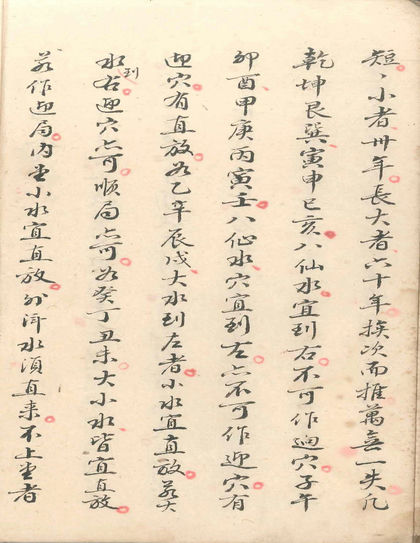 短、小者卅年長大者六十年挨次而推萬無一失凡
乾坤艮巽寅申巳亥八仙水宜到右不可作迴穴子午
卯酉甲庚丙寅壬八仙水穴宜到左亦不可作迎穴有
迎穴有直放如乙辛辰戌大水到左者小水宜直放若大
水到右迎穴亦可順局亦可如癸丁丑未大小水皆宜直放
若作迎局內堂小水宜直放外洋水須直来不上堂者